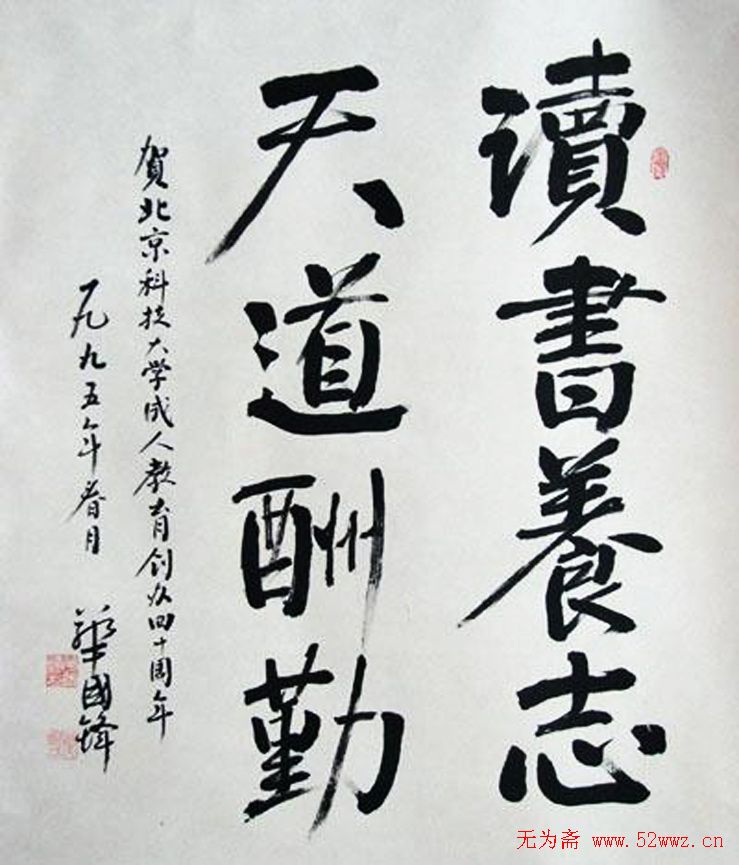 讀書養志
天道酬勤
賀北京科技大学成人教育创办四十周年
一九九五年春月
華國鋒
无为斋 www.52wwz.cn